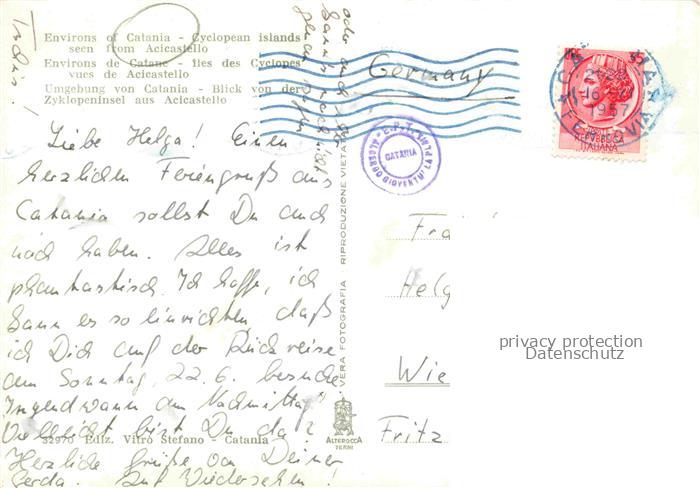 Environs of Catania - Cyclopean islands
seen from Acicastello
Environs de Catane - Iles des Cyclopes
vues de Acicastello
Umgebung von Catania - Blick von der
Zyklopeninsel aus Acicastello
Liebe Helga! Einen
herzlichen Feriengruß aus
Catania sollst Du auch
noch haben. Alles ist
phantastisch. Ich hoffe, ich
kann es so einrichten, daß
ich Dich auf der Rückreise
am Sonntag, 22.6. besuche
Irgendwann am Nachmittag
Vielleicht bist Du da?
Herzliche Grüße von Deiner
Gerda. Auf Wiedersehen!
32970 Ediz. Vitro Stefano - Catania
VERA FOTOGRAFIA - RIPRODUZIONE VIETATA
ALTEROCCA
TERNI
Germany
CATANIA
ALBERGO GIOVENTU' LA PLAYA
1957
FERROVIA
ITALIANA
Helg
Wie
Fritz
privacy protection
Datenschutz